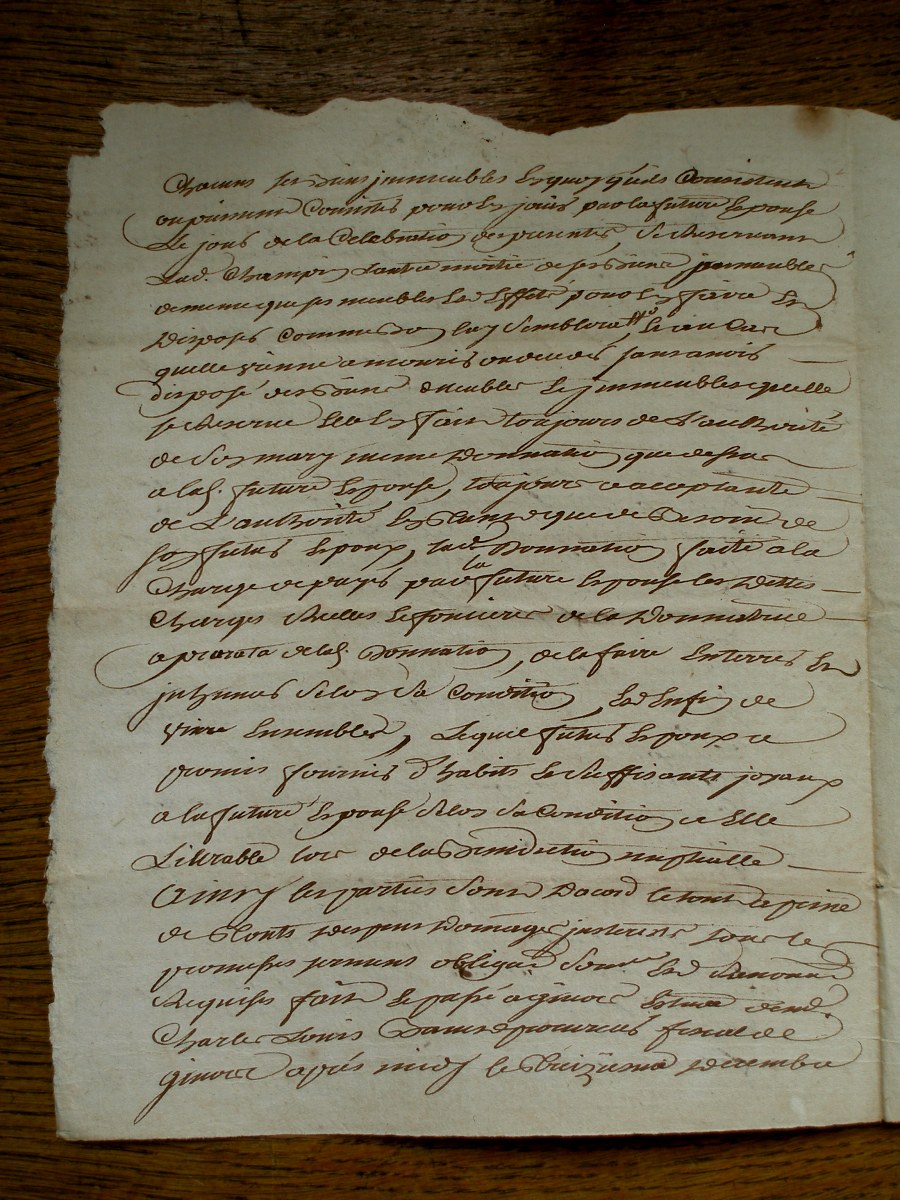 Chacuns ses biens immeubles en quoy qu'ils Consistent
ou puissent Consister pour les jouir par la future Epouse
Le jour de la Celebration des presentes, se Reservant
Lad. Champin Lautre moitie de ses biens immeubles
de meme que ses meubles Et Effets pour En faire Et
Disposer Comme bon luy Semblera, Et au Cas
quelle vienne a mourir sans avoir
disposé des biens meubles Et immeubles quelle
se Reserve Elle En fait toujours de L'authorité
de Son mary meme Donnation que dessus
a lad. future Epouse, toujours acceptante
de L'authorité que de
son futur Epoux, lad. Donnation faite a la
Charge de payer par la future Epouse les Dettes
Charges Réelles Et foncieres de la Donnatrice
a prorata de lad. Donnation, de la faire Enterrer Et
inhumer Selon Sa Condition, Et Enfin de
vivre Ensembles, Lequel futur Epoux a
promis fournir d'habits Et Suffisants joyaux
a la future Epouse Selon Sa Condition a Elle
Livrable lors de la Benediction nuptialle
Ainsy les parties Sont D'acord Le tout a peine
de touts despens Domages interests sous les
promesses serment obligaõn Soumõn Et Renonaõn
Requises fait Et passé a gimois Estude de md.
Charles Louis procureur fiscal de
gimois après midy le treizieme Decembre